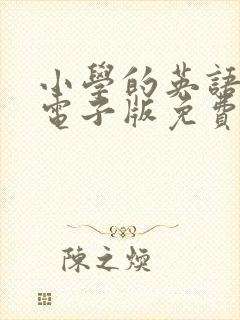 小學的英語
電子版免費
陳之煥